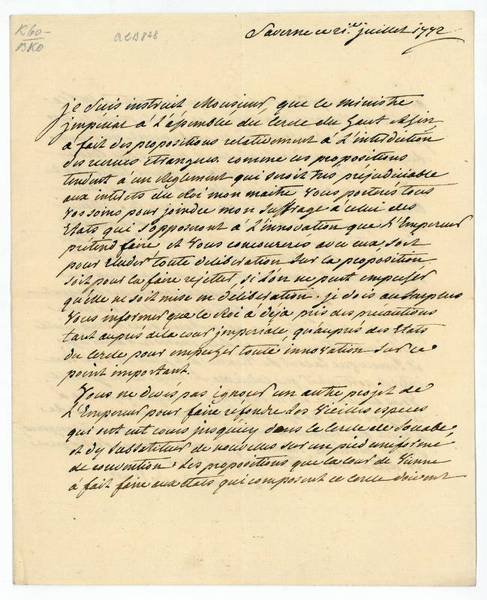 K60-
BK0
Saverne ce 21.e juillet 1772
je suis instruit Monsieur que le ministre
imperial à L'assemblée du Cercle du haut Rhin
à fait des propositions relativement à L'interdiction
des recrues Etrangues. comme ces propositions
tendent à un Reglement qui seroit tres préjudiciable
aux interets du Roi mon maitre Vous porterés tous
Vos soins pour joindre mon suffrage à celui des
Etats qui s'opposeront à L'innovation que L'Empereur
pretend faire et Vous concourerés avec eux, soit
pour Eluder toute deliberation sur la proposition
soit pour la faire rejetter, si L'on ne peut empecher
qu'elle ne soit mise en deliberation. je dois au surplus
Vous informer que le Roi a deja pris des precautions
tant auprès de la cour imperiale, qu'auprès des Etats
du Cercle pour empecher toute innovation sur ce
point important.
Vous ne devés pas ignorer un autre projet de
L'Empereur pour faire refondre Les Vieilles especes
qui ont eut cours jusqu'icy dans le Cercle de Souabe
et d'y substituer de nouvelles sur un pied uniforme
de convention. Les propositions que la Cour de Vienne
à fait faire aux Etats qui composent ce Cercle doivent